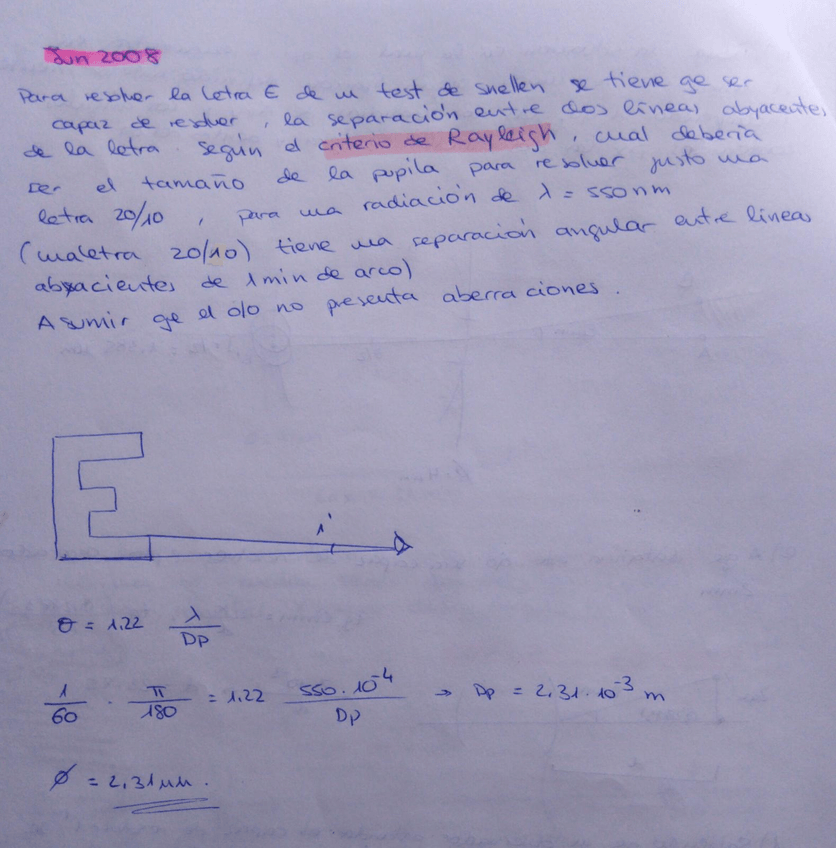 Jun 2008
Para resolver la letra E de un test de snellen se tiene qe ser
capaz de resolver, la separación entre dos líneas abyacentes
de la letra. Según el criterio de Rayleigh, cual debería
ser el tamaño de la pupila para resolver justo una
letra 20/10, para una radiación de λ = 550 nm
(una letra 20/10) tiene una separación angular entre líneas
abyacientes de 1 min de arco)
Asumir qe el ojo no presenta aberraciones.
1'
θ = 1.22 λ/Dp
1/60 · π/180 = 1.22 550·10⁻⁴/Dp → Dp = 2,31·10⁻³ m
ø = 2,31 mm.